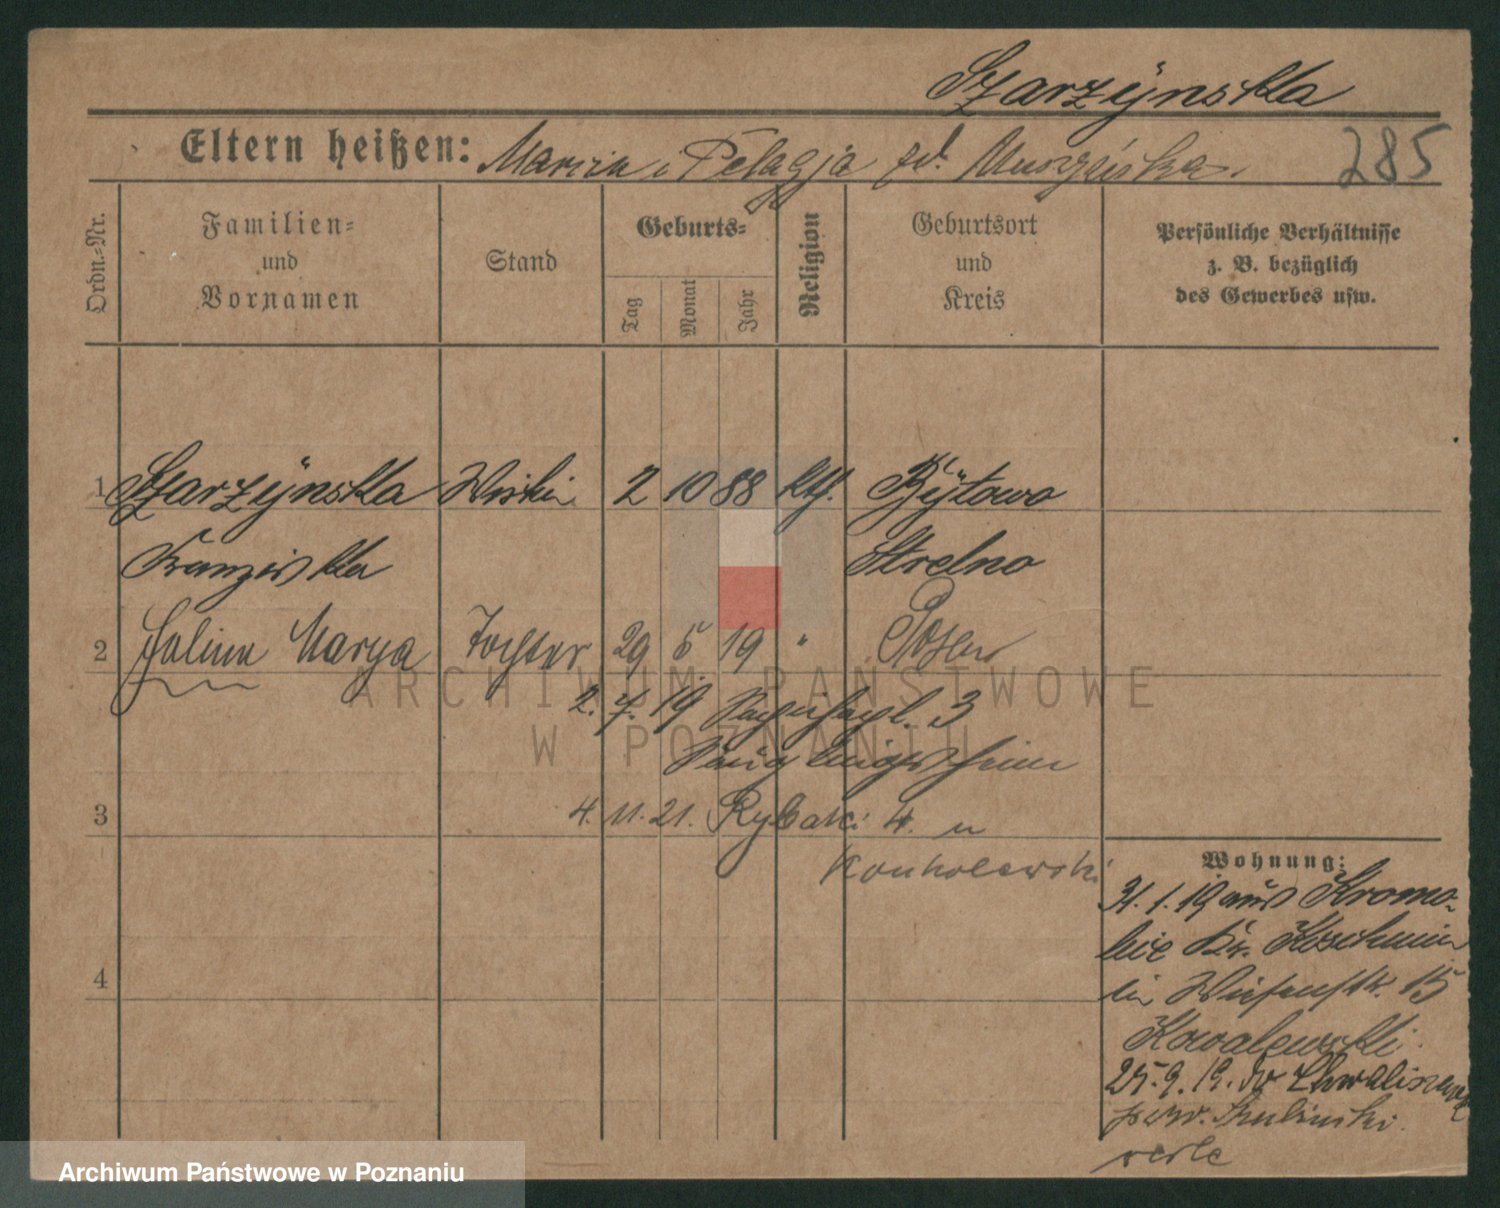 Szarzÿnska
Eltern heißen: Marcin i Pelagja zd. Muszyńska.
285
Ordn.-Nr.
Familien-
und
Vornamen
Stand
Geburts-
Tag
Monat
Jahr
Religion
Geburtsort
und
Kreis
Persönliche Verhältnisse
z. B. bezüglich
des Gewerbes usw.
1 Szarzÿnska 2 10 88 kth. Bÿtowo
Franziska Strelno
2 Halina Marya Tochter 29 5 19 " Posen
2. 7. 19 3
Säuglingsheim
3 4. 11. 21. Rybaki 4. u
Konkolewski
4
Wohnung:
31. 1. 19 aus Kromo-
lice Kr. Koschmin
in Wiesenstr. 15
Kowalewski.
25. 9. 19. do
pow. Szubinski.
ARCHIWUM PAŃSTWOWE
W POZNANIU
Archiwum Państwowe w Poznaniu